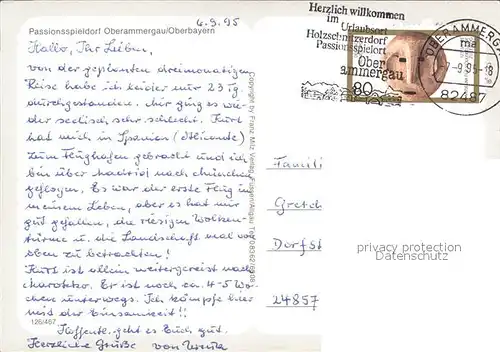 6.9.95
Passionsspieldorf Oberammergau/Oberbayern
Hallo, Ihr Lieben,
von der geplanten dreimonatigen
Reise habe ich leider nur 23 Tg.
durchgestanden. Mir ging es wie-
der seelisch sehr schlecht. Kurt
hat mich in Spanien (Alicante)
zum Flughafen gebracht und ich
bin über Madrid nach München
geflogen. Es war der erste Flug in
meinem Leben, aber es hat mir
gut gefallen, die riesigen Wolken-
türme u. die Landschaft mal von
oben zu betrachten!
Kurt ist allein weitergereist nach
Marokko. Er ist noch ca. 4-5 Wo-
chen unterwegs. Ich kämpfe hier
mit der Einsamkeit!!
126/467
Hoffentl. geht es Euch gut.
Herzliche Grüße von
Copyright by Franz Milz Verlag
Herzlich willkommen
im
Urlaubsort
Holzschnitzerdorf
Passionsspielort
Ober
ammergau
80
OBERAMMERG
-9.95-18
82487
Famili
Gretch
Dorfst
24857
privacy protection
VEREMUNDO.de